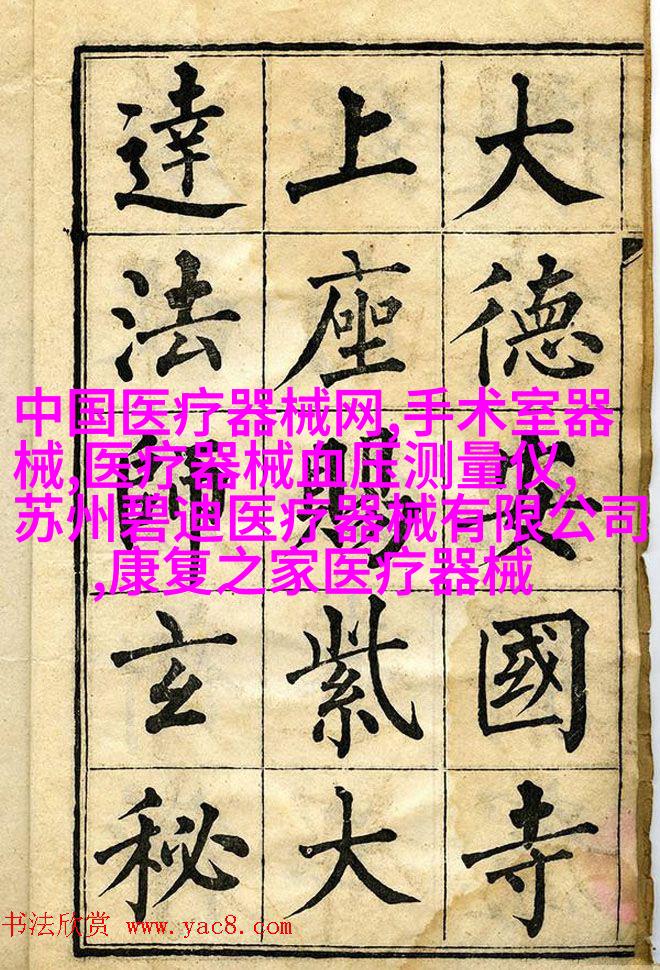 大德安國寺
上座賜紫大
達法師玄秘
中国医疗器械网,手术室器
械,医疗器械血压测量仪,
苏州碧迪医疗器械有限公司
,康复之家医疗器械
书法欣赏 www.yac8.com